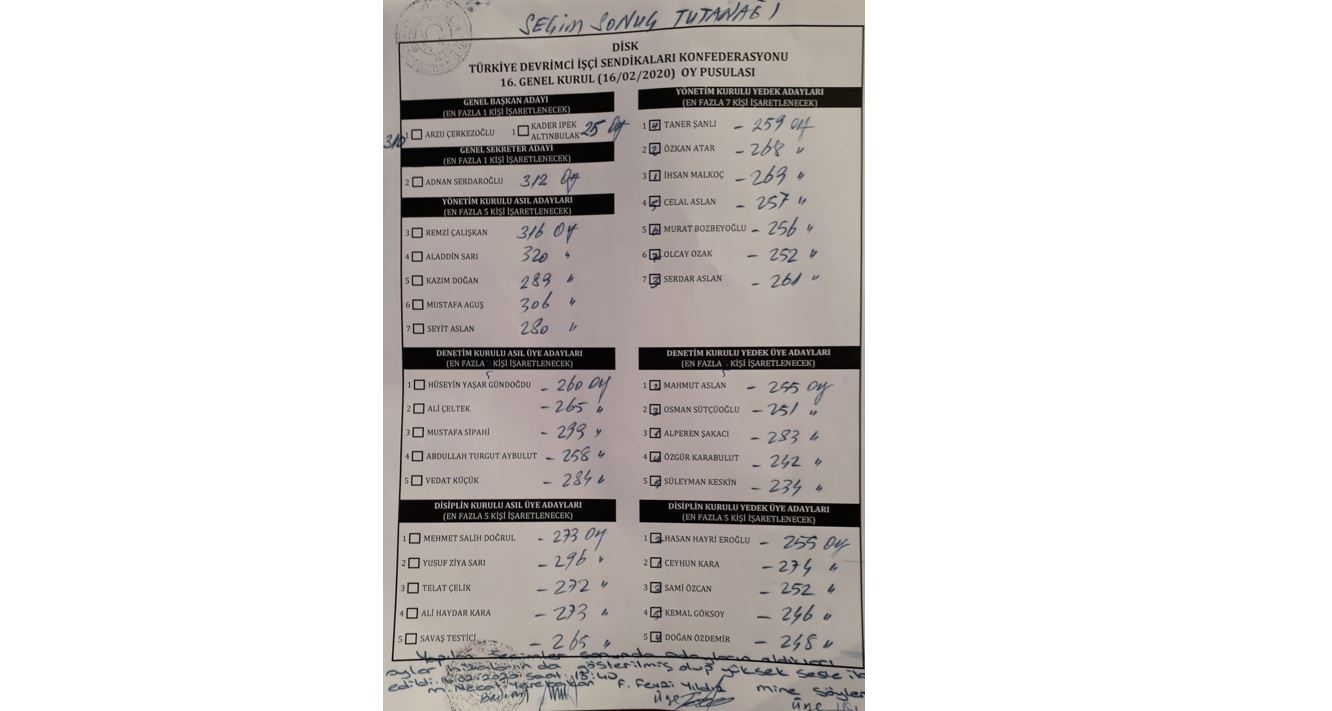 SEÇİM SONUÇ TUTANAĞI
DİSK
TÜRKİYE DEVRİMCİ İŞÇİ SENDİKALARI KONFEDERASYONU
16. GENEL KURUL (16/02/2020) OY PUSULASI
GENEL BAŞKAN ADAYI
(EN FAZLA 1 KİŞİ İŞARETLENECEK)
310 1 ARZU ÇERKEZOĞLU 1 KADER İPEK ALTINBULAK 25 Oy
GENEL SEKRETER ADAYI
(EN FAZLA 1 KİŞİ İŞARETLENECEK)
2 ADNAN SERDAROĞLU 312 Oy
YÖNETİM KURULU ASIL ADAYLARI
(EN FAZLA 5 KİŞİ İŞARETLENECEK)
3 REMZİ ÇALIŞKAN 316 Oy
4 ALADDİN SARI 320 "
5 KAZIM DOĞAN 289 "
6 MUSTAFA AGUŞ 306 "
7 SEYİT ASLAN 280 "
YÖNETİM KURULU YEDEK ADAYLARI
(EN FAZLA 7 KİŞİ İŞARETLENECEK)
1 4 TANER ŞANLI - 259 Oy
2 2 ÖZKAN ATAR - 268 "
3 1 İHSAN MALKOÇ - 269 "
4 5 CELAL ASLAN - 257 "
5 6 MURAT BOZBEYOĞLU - 256 "
6 7 OLCAY OZAK - 252 "
7 3 SERDAR ASLAN - 261 "
DENETİM KURULU ASIL ÜYE ADAYLARI
(EN FAZLA 5 KİŞİ İŞARETLENECEK)
1 HÜSEYİN YAŞAR GÜNDOĞDU - 260 Oy
2 ALİ ÇELTEK - 265 "
3 MUSTAFA SİPAHİ - 299 "
4 ABDULLAH TURGUT AYBULUT - 258 "
5 VEDAT KÜÇÜK - 284 "
DENETİM KURULU YEDEK ÜYE ADAYLARI
(EN FAZLA 5 KİŞİ İŞARETLENECEK)
1 2 MAHMUT ASLAN - 255 Oy
2 3 OSMAN SÜTÇÜOĞLU - 251 "
3 1 ALPEREN ŞAKACI - 283 "
4 4 ÖZGÜR KARABULUT - 242 "
5 5 SÜLEYMAN KESKİN - 234 "
DİSİPLİN KURULU ASIL ÜYE ADAYLARI
(EN FAZLA 5 KİŞİ İŞARETLENECEK)
1 MEHMET SALİH DOĞRUL - 273 Oy
2 YUSUF ZİYA SARI - 296 "
3 TELAT ÇELİK - 272 "
4 ALİ HAYDAR KARA - 273 "
5 SAVAŞ TESTİCİ - 265 "
DİSİPLİN KURULU YEDEK ÜYE ADAYLARI
(EN FAZLA 5 KİŞİ İŞARETLENECEK)
1 2 HASAN HAYRİ EROĞLU - 255 Oy
2 1 CEYHUN KARA - 274 "
3 3 SAMİ ÖZCAN - 252 "
4 5 KEMAL GÖKSOY - 246 "
5 4 DOĞAN ÖZDEMİR - 248 "
Yapılan Seçimler sonunda adayların aldıkları
oylar hizalarında gösterilmiş olup yüksek sesle il
edildi. 16.02.2020 saat 15:40
M. Necati F. Fevzi Yıldız Mine Söyler
Başkan Üye Üye